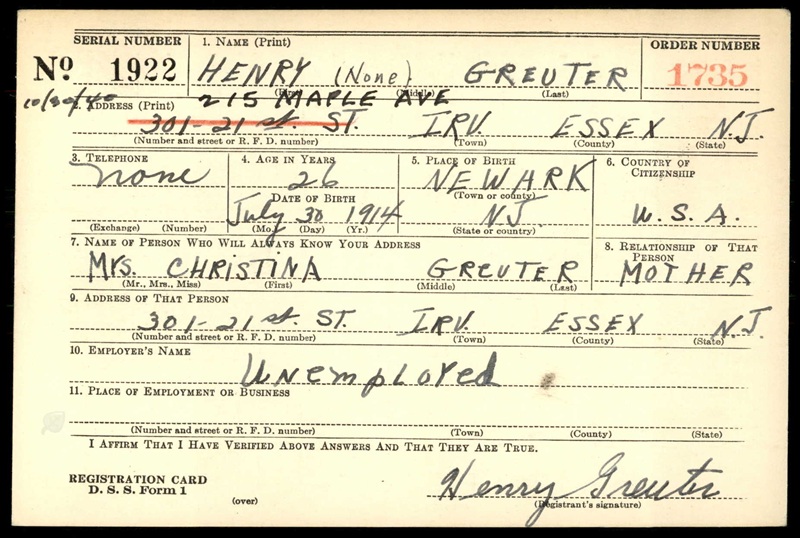 SERIAL NUMBER 1. NAME (Print) ORDER NUMBER
No 1922 HENRY (None) GREUTER 1735
(First) (Middle) (Last)
10/30/40 215 MAPLE AVE
2. ADDRESS (Print)
301-21 st. ST. IRV. ESSEX N.J.
(Number and street or R. F. D. number) (Town) (County) (State)
3. TELEPHONE 4. AGE IN YEARS 5. PLACE OF BIRTH 6. COUNTRY OF CITIZENSHIP
none 26 NEWARK
DATE OF BIRTH (Town or county)
July 30 1914 N.J. U.S.A.
(Exchange) (Number) (Mo.) (Day) (Yr.) (State or country)
7. NAME OF PERSON WHO WILL ALWAYS KNOW YOUR ADDRESS 8. RELATIONSHIP OF THAT PERSON
Mrs. CHRISTINA GREUTER MOTHER
(Mr., Mrs., Miss) (First) (Middle) (Last)
9. ADDRESS OF THAT PERSON
301-21 st. ST. IRV. ESSEX N.J.
(Number and street or R. F. D. number) (Town) (County) (State)
10. EMPLOYER'S NAME
Unemployed
11. PLACE OF EMPLOYMENT OR BUSINESS
(Number and street or R. F. D. number) (Town) (County) (State)
I AFFIRM THAT I HAVE VERIFIED ABOVE ANSWERS AND THAT THEY ARE TRUE.
REGISTRATION CARD
D. S. S. Form 1 Henry Greuter
(over) (Registrant's signature)